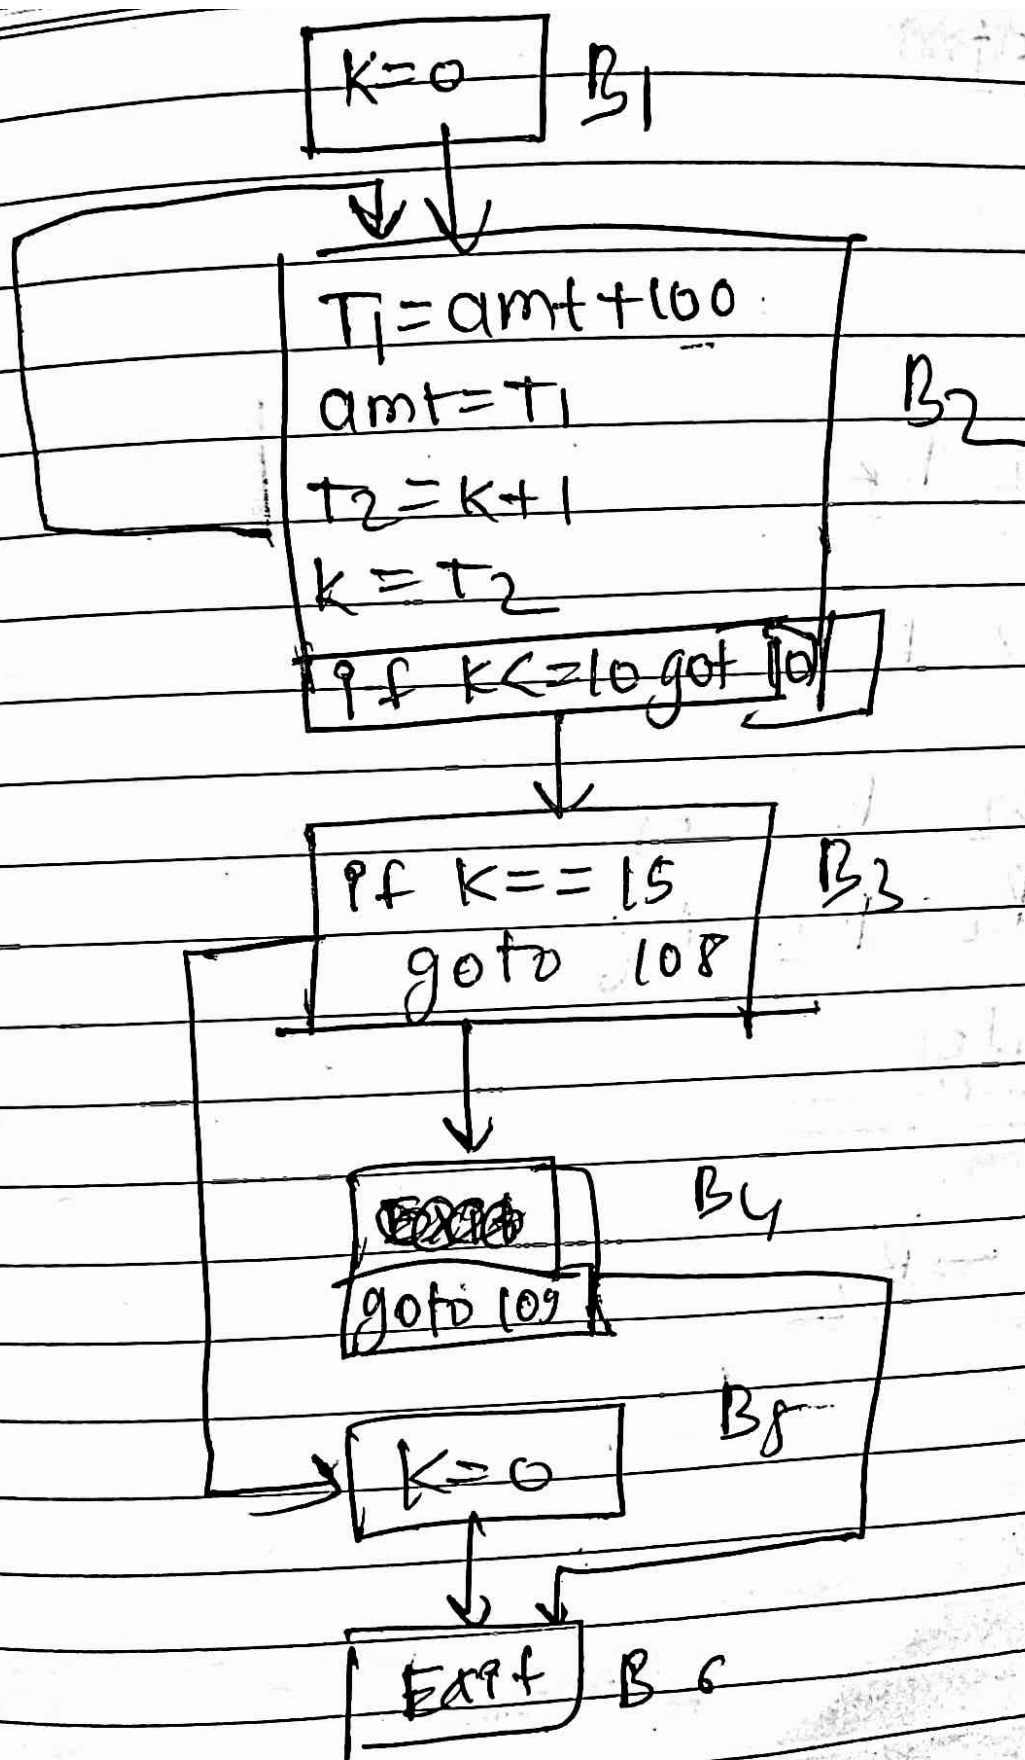 K=0 B1
T1=amt+100
amt=T1 B2
T2=K+1
K=T2
if K<=10 got
if K==15 B3
goto 108
B4
goto 109
B5
K=0
Exit B6